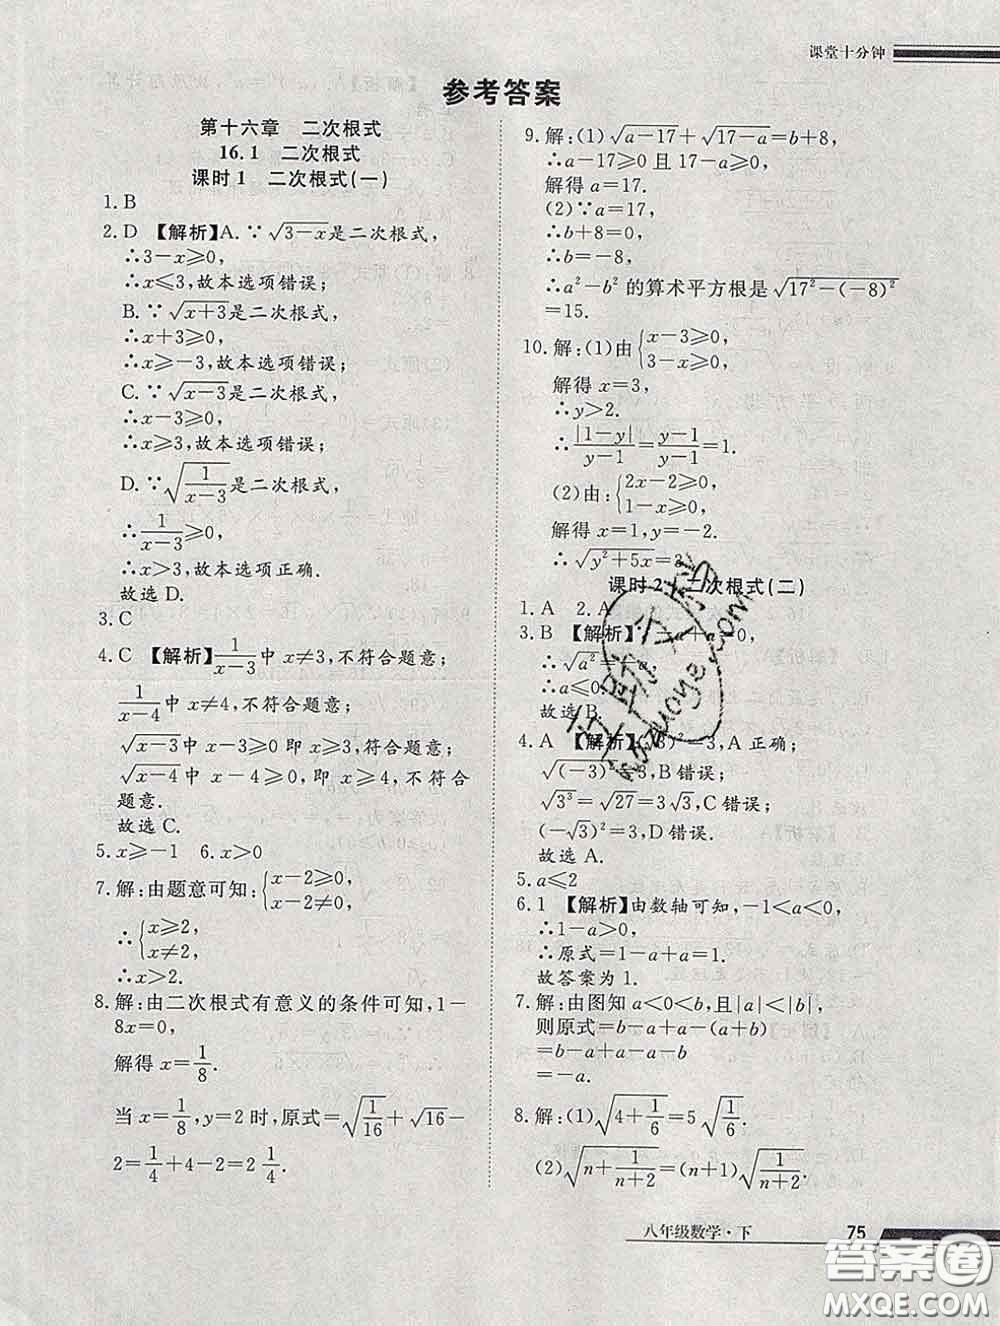 课堂十分钟
参考答案
第十六章 二次根式
16.1 二次根式
课时1 二次根式(一)
1. B
2. D 【解析】A. ∵√(3-x)是二次根式,
∴3-x≥0,
∴x≤3,故本选项错误;
B. ∵√(x+3)是二次根式,
∴x+3≥0,
∴x≥-3,故本选项错误;
C. ∵√(x-3)是二次根式,
∴x-3≥0,
∴x≥3,故本选项错误;
D. ∵√(1/(x-3))是二次根式,
∴1/(x-3)≥0,
∴x>3,故本选项正确.
故选 D.
3. C
4. C 【解析】1/(x-3)中 x≠3,不符合题意;
1/(x-4)中 x≠4,不符合题意;
√(x-3)中 x-3≥0 即 x≥3,符合题意;
√(x-4)中 x-4≥0,即 x≥4,不符合
题意.
故选 C.
5. x≥-1 6. x>0
7. 解:由题意可知:{x-2≥0, x-2≠0,
∴{x≥2, x≠2,
∴x>2.
8. 解:由二次根式有意义的条件可知,1-
8x=0,
解得 x=1/8.
当 x=1/8,y=2 时,原式=√(1/16)+√16-
2=1/4+4-2=2 1/4.
9. 解:(1)√(a-17)+√(17-a)=b+8,
∴a-17≥0 且 17-a≥0,
解得 a=17.
(2)∵a=17,
∴b+8=0,
∴b=-8,
∴a²-b² 的算术平方根是√(17²-(-8)²)
=15.
10. 解:(1)由{x-3≥0, 3-x≥0,
解得 x=3,
∴y>2.
∴|1-y|/(y-1)=(y-1)/(y-1)=1.
(2)由:{2x-2≥0, 1-x≥0,
解得 x=1,y=-2.
∴√(y²+5x)=3.
课时2 二次根式(二)
1. A 2. A
3. B 【解析】∵ +a=0,
∴√a²=-a,
∴a≤0,
故选 B.
4. A 【解析】(√3)²=3,A 正确;
√(-3)²=3,B 错误;
√3³=√27=3√3,C 错误;
(-√3)²=3,D 错误.
故选 A.
5. a≤2
6. 1 【解析】由数轴可知,-1<a<0,
∴1-a>0,
∴原式=1-a+a=1.
故答案为 1.
7. 解:由图知 a<0<b,且|a|<|b|,
则原式=b-a+a-(a+b)
=b-a+a-a-b
=-a.
8. 解:(1)√(4+1/6)=5√(1/6).
(2)√(n+1/(n+2))=(n+1)√(1/(n+2)).
八年级数学·下 75
答案圈
MXQE.COM